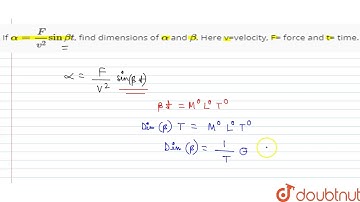 If α = F/v² sin βt, find dimensions of α and β. Here v=velocity, F= force and t= time.
α = F/V² sin(βt)
βt = M⁰ L⁰ T⁰
Dim (β) T = M⁰ L⁰ T⁰
Dim (β) = 1/T
doubtnut